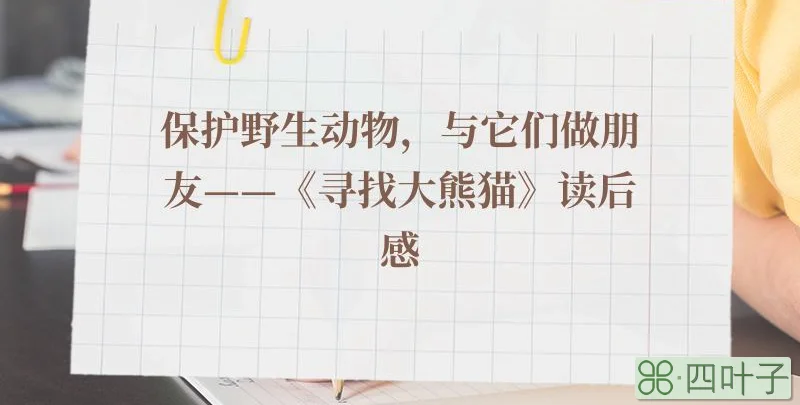 保护野生动物，与它们做朋
友——《寻找大熊猫》读后
感
四叶子